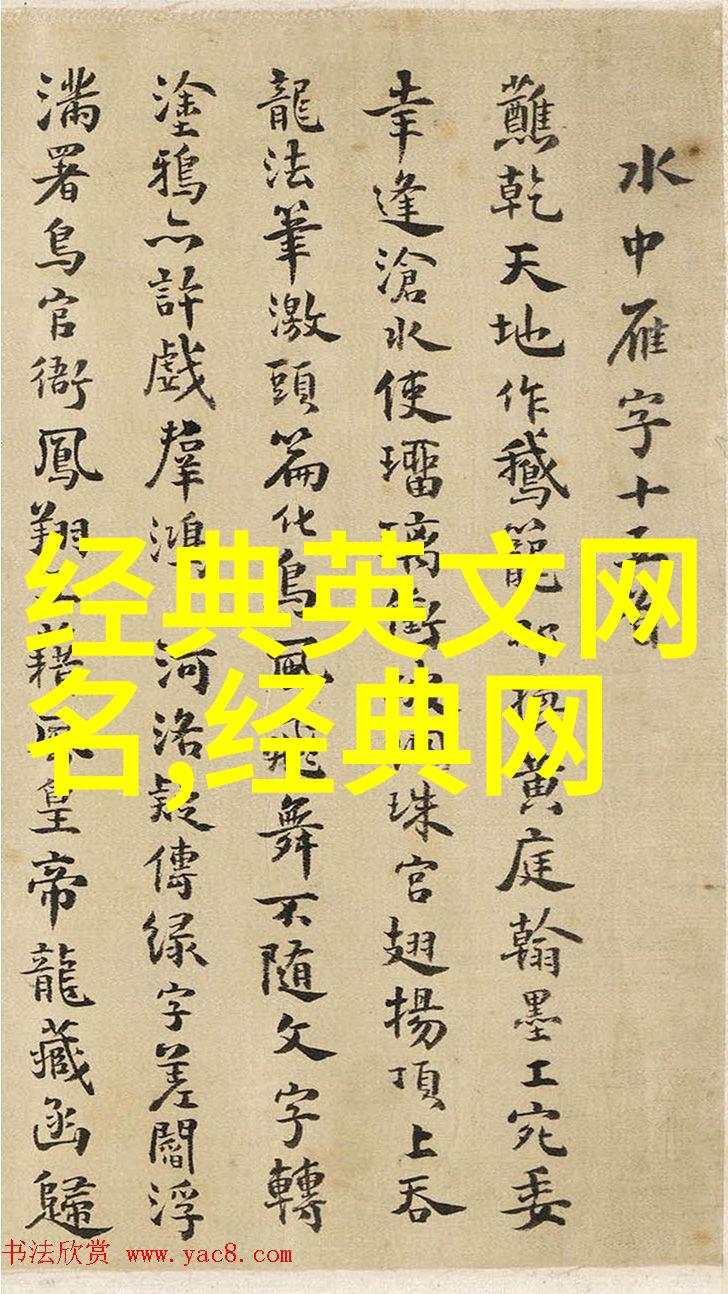 水中雁字十
蘸乾天地作鵝籠 黄庭翰墨工宛委
幸逢滄水使瑠璃 珠宮翅揚頂上吞
龍法筆激頭篇化鳥風飛舞不隨文字轉
塗鴉亦許戲羣鴻 河洛疑傳緑字差閻浮
滿署鳥官銜鳳翔 皇帝龍藏函歸
经典英文网
名,经典网
书法欣赏 www.yac8.com